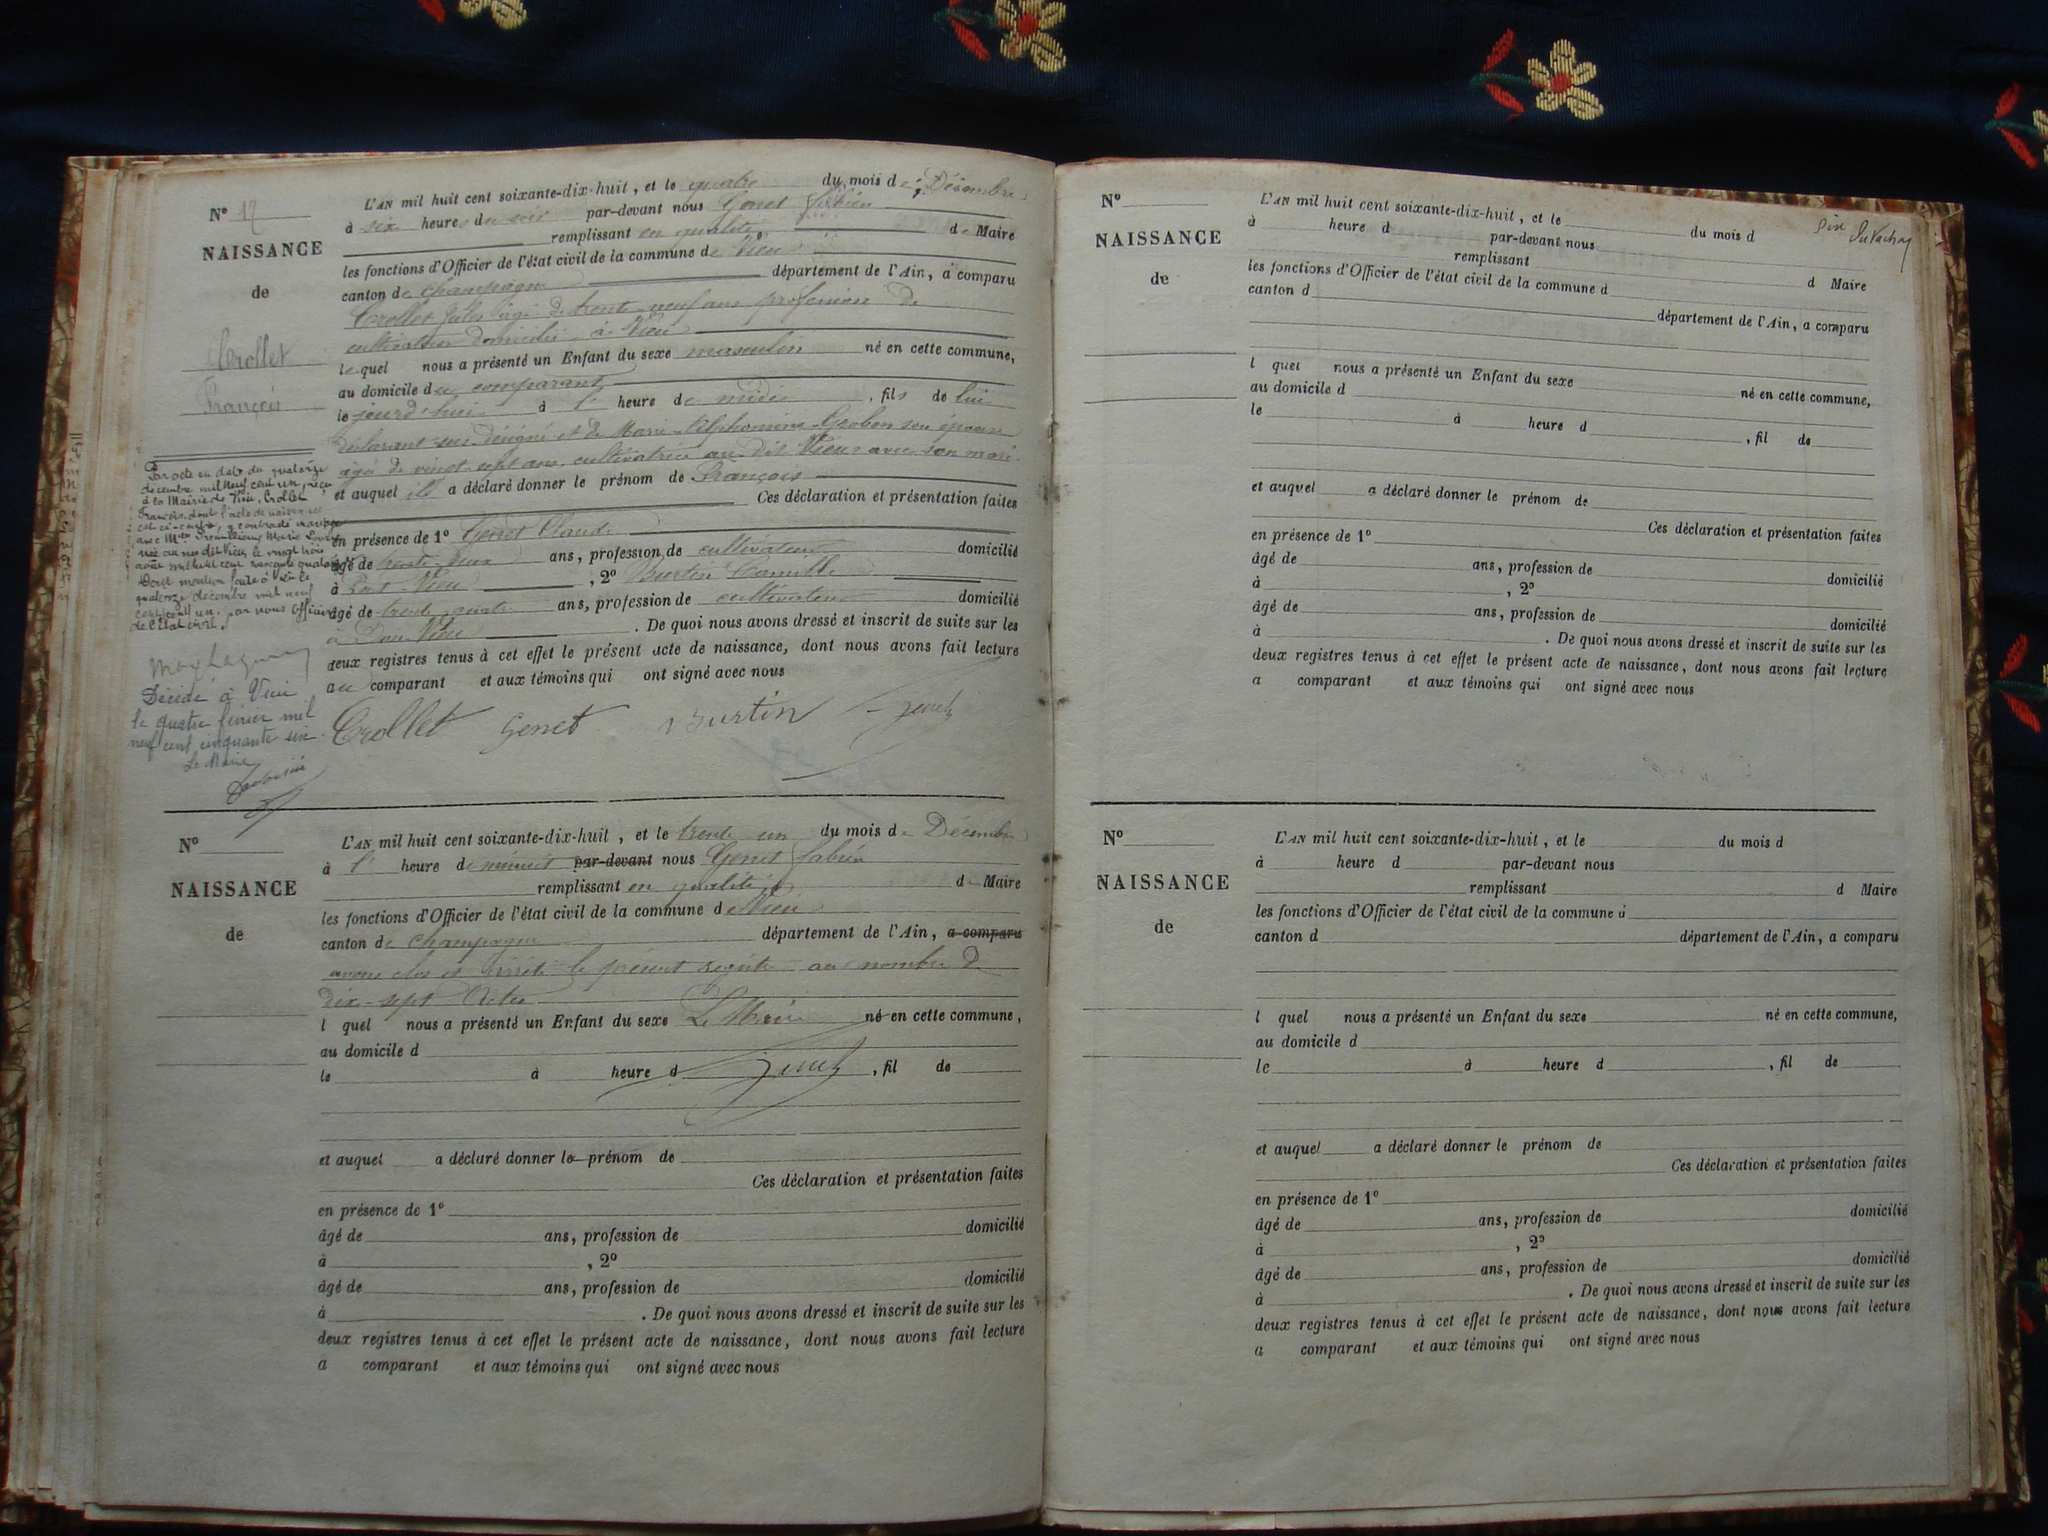 N° 17
NAISSANCE
de
Crollet
François
L'AN mil huit cent soixante-dix-huit, et le quatre du mois de Décembre
à six heures du soir par-devant nous Genet Fabien
remplissant en qualité de Maire
les fonctions d'Officier de l'état civil de la commune de Vieu
canton de Champagne département de l'Ain, a comparu
Crollet Jules âgé de trente-neuf ans profession de
cultivateur domicilié à Vieu
lequel nous a présenté un Enfant du sexe masculin né en cette commune,
au domicile du comparant
le jourd'hui à l' heure de midi, fils de lui
déclarant sus-désigné et de Marie Grobon son épouse
âgée de vingt-sept ans, cultivatrice au dit Vieu avec son mari
et auquel il a déclaré donner le prénom de François
Ces déclaration et présentation faites
en présence de 1° Genet Claude
âgé de trente ans, profession de cultivateur domicilié
à Vieu, 2° Burtin Camille
âgé de trente quatre ans, profession de cultivateur domicilié
à Vieu. De quoi nous avons dressé et inscrit de suite sur les
deux registres tenus à cet effet le présent acte de naissance, dont nous avons fait lecture
au comparant et aux témoins qui ont signé avec nous
Crollet Genet Burtin Genet
Par acte en date du quatorze
décembre mil neuf cent un, reçu
à la Mairie de Vieu, Crollet
François dont l'acte de naissance
est ci-contre, a contracté mariage
avec Marie
née au dit Vieu le vingt trois
août mil huit cent soixante quatorze
Dont mention faite à Vieu le
quatorze décembre mil neuf
cent un, par nous Officier
de l'état civil.
Décédé à Vieu
le quatre février mil
neuf cent cinquante six
Le Maire
N°
NAISSANCE
de
L'AN mil huit cent soixante-dix-huit, et le trente un du mois de Décembre
à l' heure de minuit par-devant nous Genet Fabien
remplissant en qualité de Maire
les fonctions d'Officier de l'état civil de la commune de Vieu
canton de Champagne département de l'Ain, a comparu
avons clos et arrêté le présent registre au nombre de
dix-sept Actes
l quel nous a présenté un Enfant du sexe Le Maire né en cette commune,
au domicile d
le à heure d Genet, fil de
et auquel a déclaré donner le prénom de
Ces déclaration et présentation faites
en présence de 1°
âgé de ans, profession de domicilié
à , 2°
âgé de ans, profession de domicilié
à . De quoi nous avons dressé et inscrit de suite sur les
deux registres tenus à cet effet le présent acte de naissance, dont nous avons fait lecture
a comparant et aux témoins qui ont signé avec nous
N°
NAISSANCE
de
L'AN mil huit cent soixante-dix-huit, et le du mois d
à heure d par-devant nous
remplissant d Maire
les fonctions d'Officier de l'état civil de la commune d
canton d département de l'Ain, a comparu
l quel nous a présenté un Enfant du sexe né en cette commune,
au domicile d
le à heure d , fil de
et auquel a déclaré donner le prénom de
Ces déclaration et présentation faites
en présence de 1°
âgé de ans, profession de domicilié
à , 2°
âgé de ans, profession de domicilié
à . De quoi nous avons dressé et inscrit de suite sur les
deux registres tenus à cet effet le présent acte de naissance, dont nous avons fait lecture
a comparant et aux témoins qui ont signé avec nous
N°
NAISSANCE
de
L'AN mil huit cent soixante-dix-huit, et le du mois d
à heure d par-devant nous
remplissant d Maire
les fonctions d'Officier de l'état civil de la commune d
canton d département de l'Ain, a comparu
l quel nous a présenté un Enfant du sexe né en cette commune,
au domicile d
le à heure d , fil de
et auquel a déclaré donner le prénom de
Ces déclaration et présentation faites
en présence de 1°
âgé de ans, profession de domicilié
à , 2°
âgé de ans, profession de domicilié
à . De quoi nous avons dressé et inscrit de suite sur les
deux registres tenus à cet effet le présent acte de naissance, dont nous avons fait lecture
a comparant et aux témoins qui ont signé avec nous